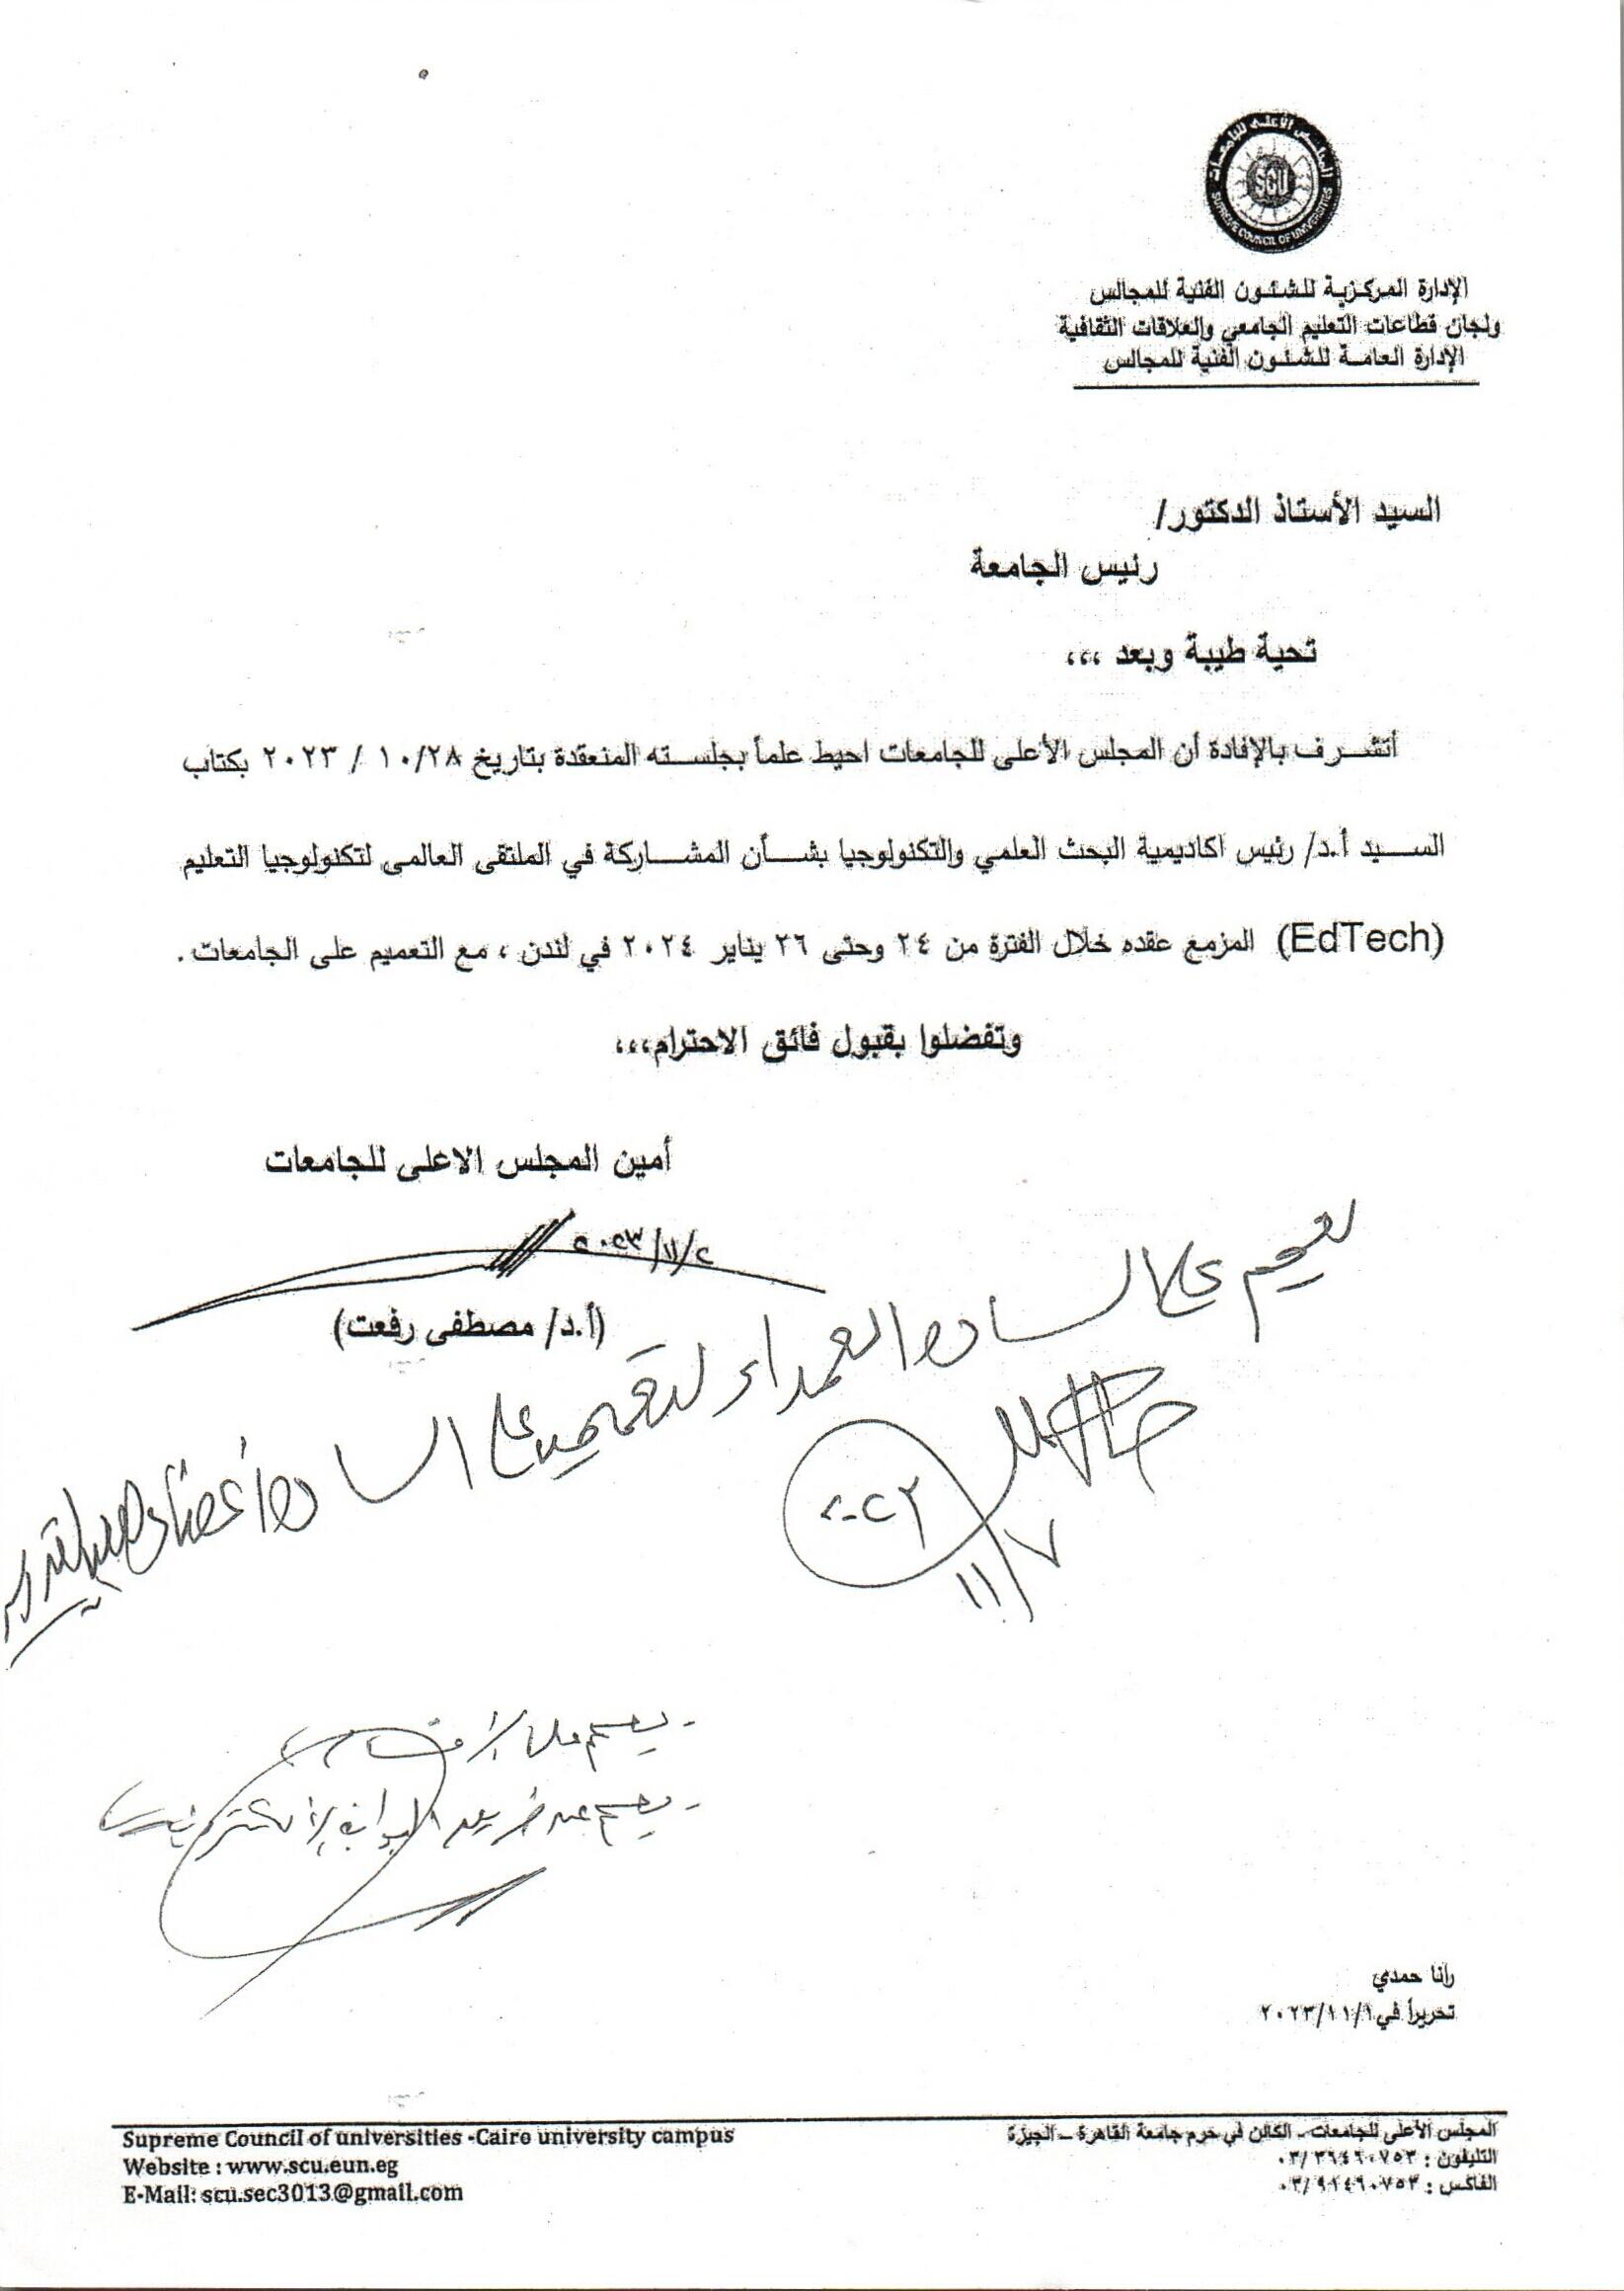 المجلس الأعلى للجامعات
SCU
SUPREME COUNCIL OF UNIVERSITIES
الإدارة المركزية للشئون الفنية للمجالس
ولجان قطاعات التعليم الجامعي والعلاقات الثقافية
الإدارة العامة للشئون الفنية للمجالس
السيد الأستاذ الدكتور/
رئيس الجامعة
تحية طيبة وبعد ،،،
أتشرف بالإفادة أن المجلس الأعلى للجامعات احيط علماً بجلسته المنعقدة بتاريخ ١٠/٢٨ / ٢٠٢٣ بكتاب
السيد أ.د/ رئيس اكاديمية البحث العلمي والتكنولوجيا بشأن المشاركة في الملتقى العالمى لتكنولوجيا التعليم
(EdTech) المزمع عقده خلال الفترة من ٢٤ وحتى ٢٦ يناير ٢٠٢٤ في لندن ، مع التعميم على الجامعات .
وتفضلوا بقبول فائق الاحترام،،،
أمين المجلس الاعلى للجامعات
٢٠٢٣/١١/٢
(أ.د/ مصطفى رفعت)
تعميم على السادة العمداء للتعميم على السادة أعضاء هيئة التدريس
٢٠٢٣
١١/٧
- يعمم على الأقسام
- يعمم عن طريق البوابة الإلكترونية
رانا حمدي
تحريراً في ٢٠٢٣/١١/١
Supreme Council of universities -Cairo university campus
Website : www.scu.eun.eg
E-Mail: scu.sec3013@gmail.com
المجلس الأعلى للجامعات - الكائن في حرم جامعة القاهرة – الجيزة
التليفون :
الفاكس :